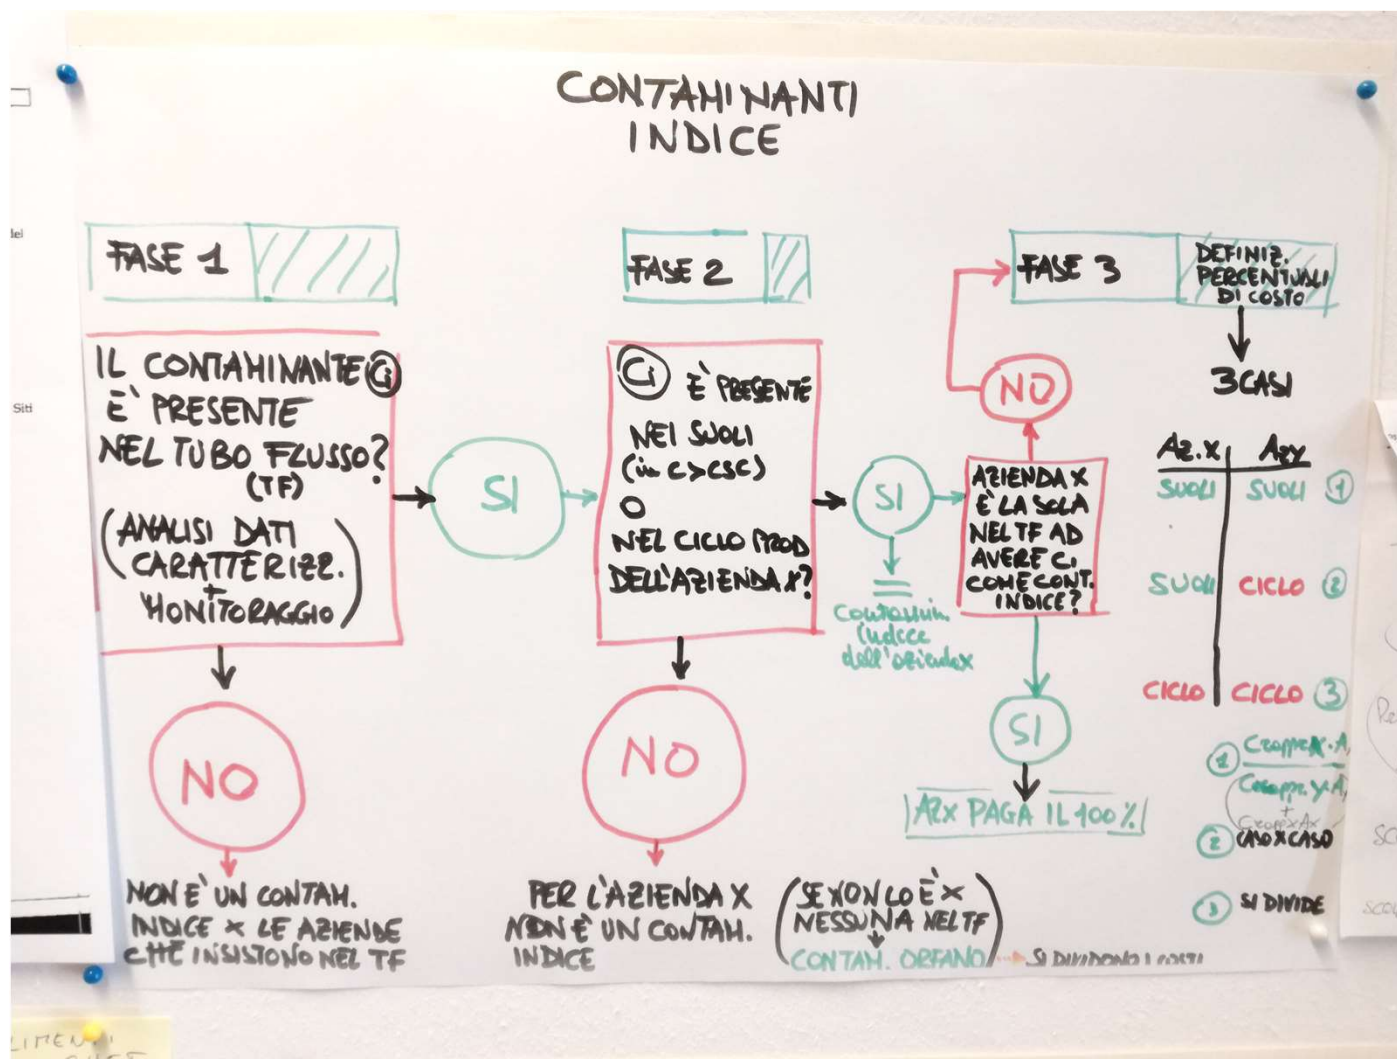 CONTAMINANTI
INDICE
FASE 1
IL CONTAMINANTE Ci
E' PRESENTE
NEL TUBO FLUSSO?
(TF)
(ANALISI DATI
CARATTERIZZ.
+
MONITORAGGIO)
SI
NO
NON E' UN CONTAM.
INDICE X LE AZIENDE
CHE INSISTONO NEL TF
FASE 2
Ci E' PRESENTE
NEI SUOLI
(in C>CSC)
O
NEL CICLO PROD
DELL'AZIENDA X?
SI
Contamin.
indice
dell'azienda X
NO
PER L'AZIENDA X
NON E' UN CONTAM.
INDICE
(SE NON LO E' X
NESSUNA NEL TF
CONTAM. ORFANO)
SI DIVIDONO I COSTI
FASE 3
DEFINIZ.
PERCENTUALI
DI COSTO
NO
AZIENDA X
È LA SOLA
NEL TF AD
AVERE Ci
COME CONT.
INDICE?
SI
AZX PAGA IL 100%
3 CASI
AZ.X AZY
SUOLI SUOLI 1
SUOLI CICLO 2
CICLO CICLO 3
1
2 CASO X CASO
3 SI DIVIDE
del
Siti
LIMENTI